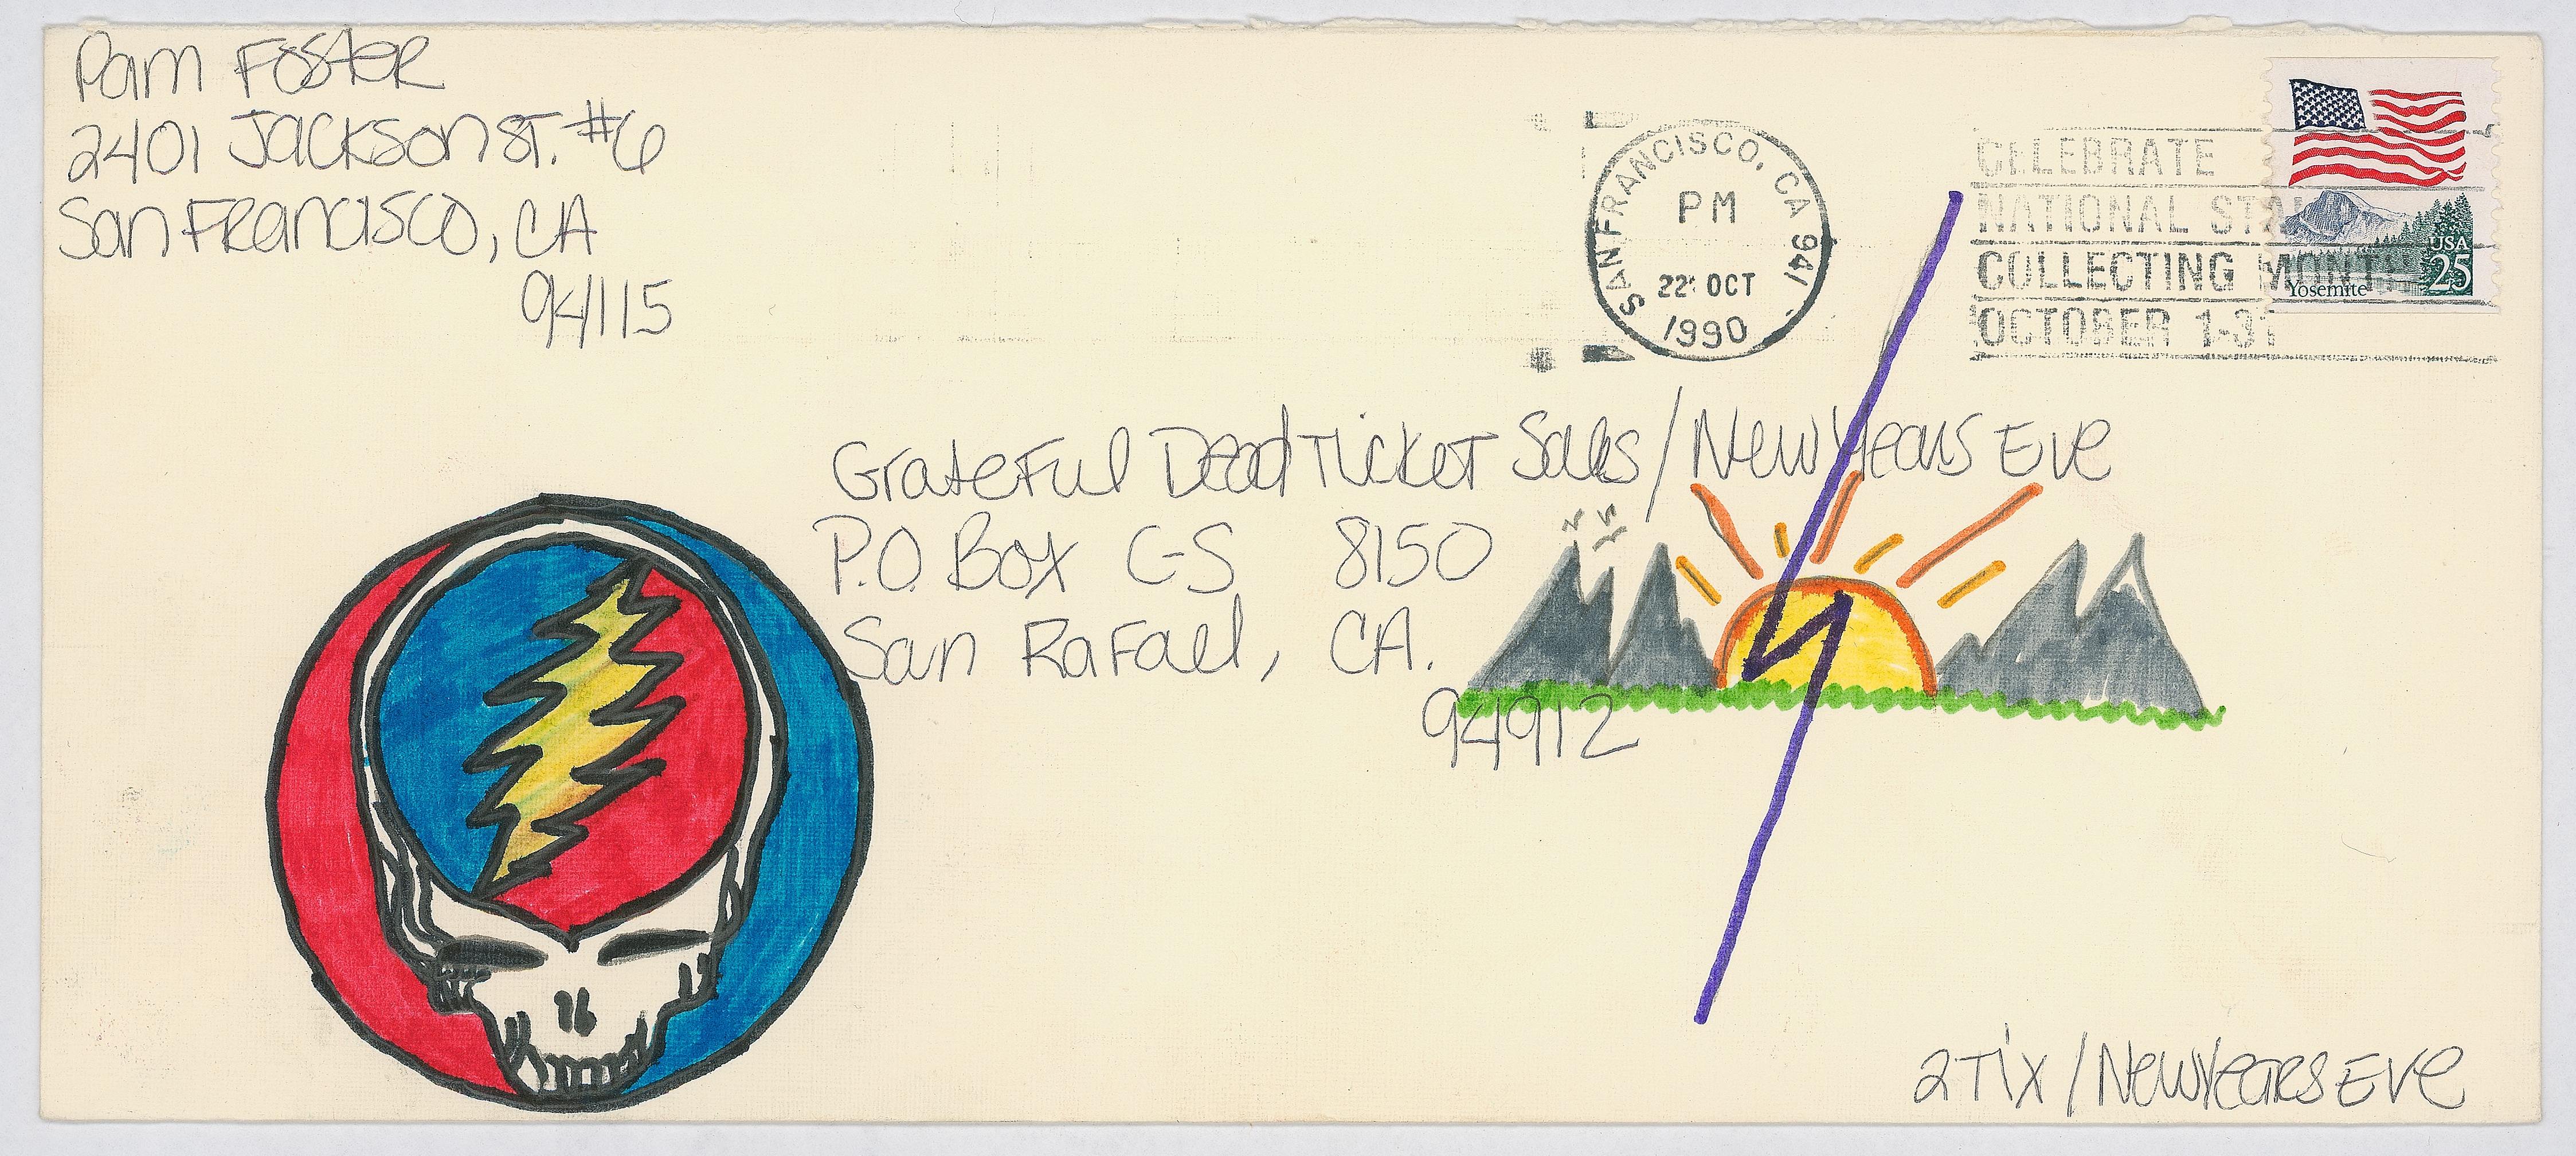 Pam Foster
2401 Jackson St. #6
San Francisco, CA
94115
SAN FRANCISCO, CA 941
PM
22 OCT
1990
CELEBRATE
NATIONAL STA
COLLECTING MONTH
OCTOBER 1-31
USA
25
Yosemite
Grateful Dead Ticket Sales / New Years Eve
P.O. Box C-S 8150
San Rafael, CA.
94912
2 Tix / New Years Eve